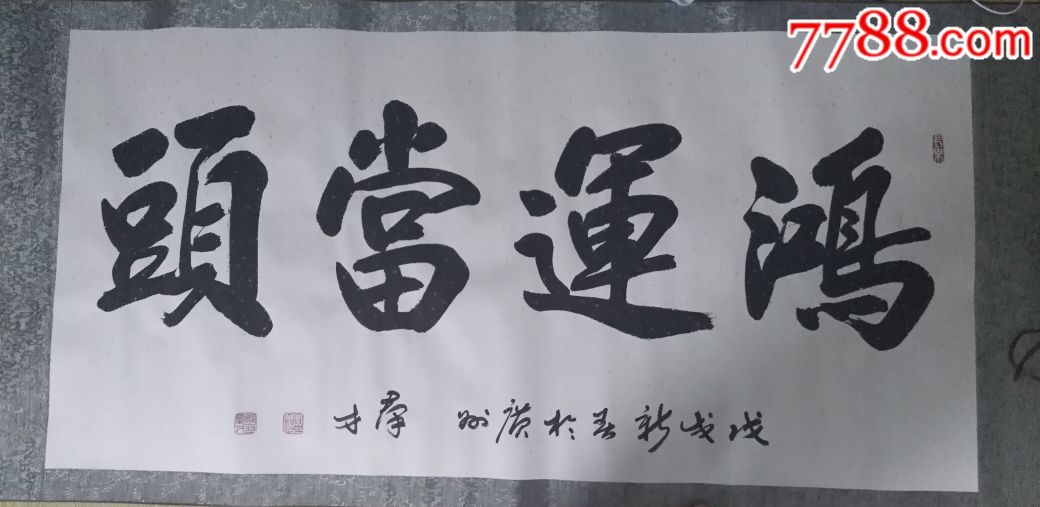 7788.com
鴻運當頭
戊戌新春於廣州 群才